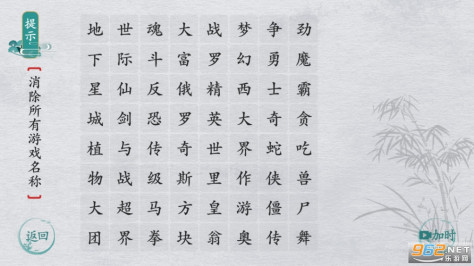 提示
消除所有游戏名称
地世魂大战梦争劲
下际斗富罗幻勇魔
星仙反俄精西士霸
城剑恐罗英大奇贪
植与传奇世界蛇吃
物战级斯里作侠兽
大超马方皇游僵尸
团界拳块翁奥传舞
返回
加时
962.NET
乐游网